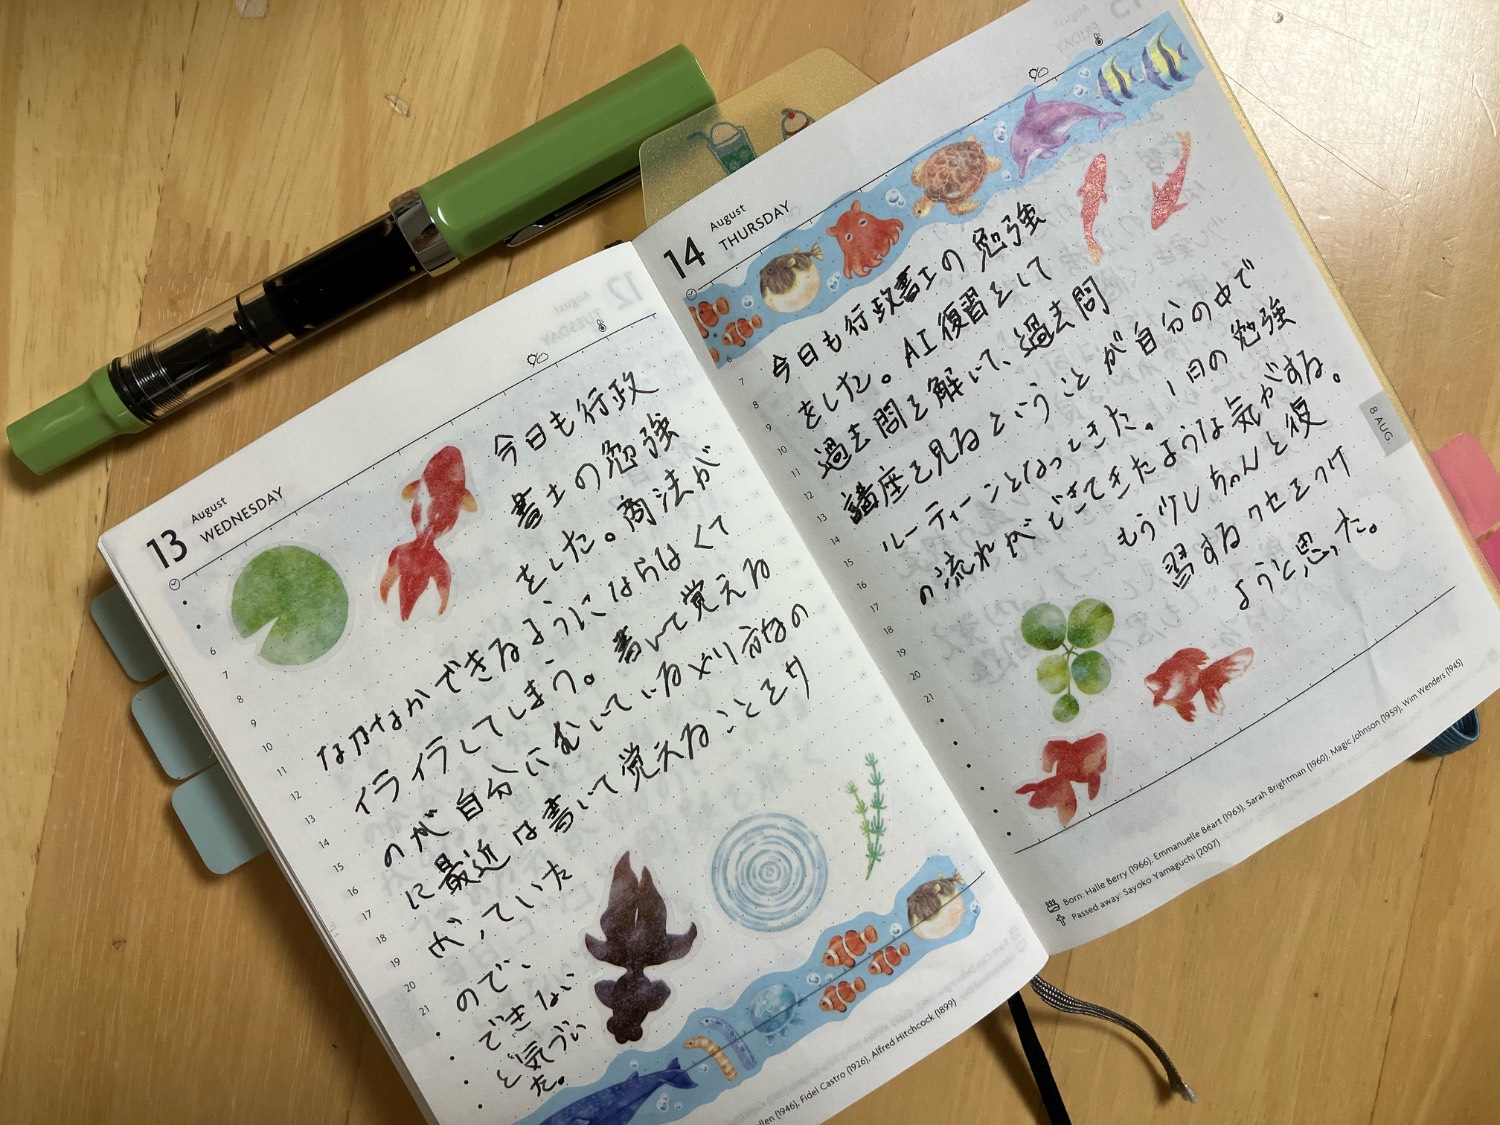 13
August
WEDNESDAY
今日も行政
書士の勉強
をした。商法が
なかなかできるようにならなくて
イライラしてしまう。書いて覚える
のが自分にむいているやり方なの
に最近は書いて覚えることをサ
ボっていた
ので、
できない
と気づい
た。
6
7
8
9
10
11
12
13
14
15
16
17
18
19
20
21
Fidel Castro (1926), Alfred Hitchcock (1899)
14
August
THURSDAY
今日も行政書士の勉強
をした。AI復習をして
過去問を解いて、過去問
講座を見るということが自分の中で
ルーティーンとなってきた。1日の勉強
の流れができてきたような気がする。
もう少しちゃんと復
習するクセをつけ
ようと思った。
6
7
8
9
10
11
12
13
14
15
16
17
18
19
20
21
8 AUG
Born: Halle Berry (1966), Emmanuelle Béart (1963), Sarah Brightman (1960), Magic Johnson (1959), Wim Wenders (1945)
Passed away: Sayoko Yamaguchi (2007)
12
August
TUESDAY